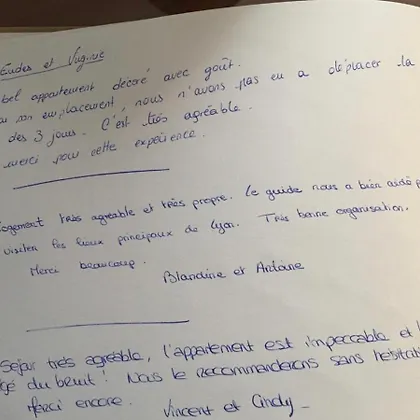 et Virginie
bel appartement décoré avec goût.
son emplacement, nous n'avons pas eu a déplacer la
des 3 jours. C'est très agréable.
merci pour cette expérience.
logement très agréable et très propre. Le guide nous a bien aidé
visiter les lieux principaux de Lyon. Très bonne organisation.
Merci beaucoup.
Blandine et Antoine
Sejour très agréable, l'appartement est impeccable et
du bruit! Nous le recommanderons sans hésitati
Merci encore.
Vincent et Cindy_